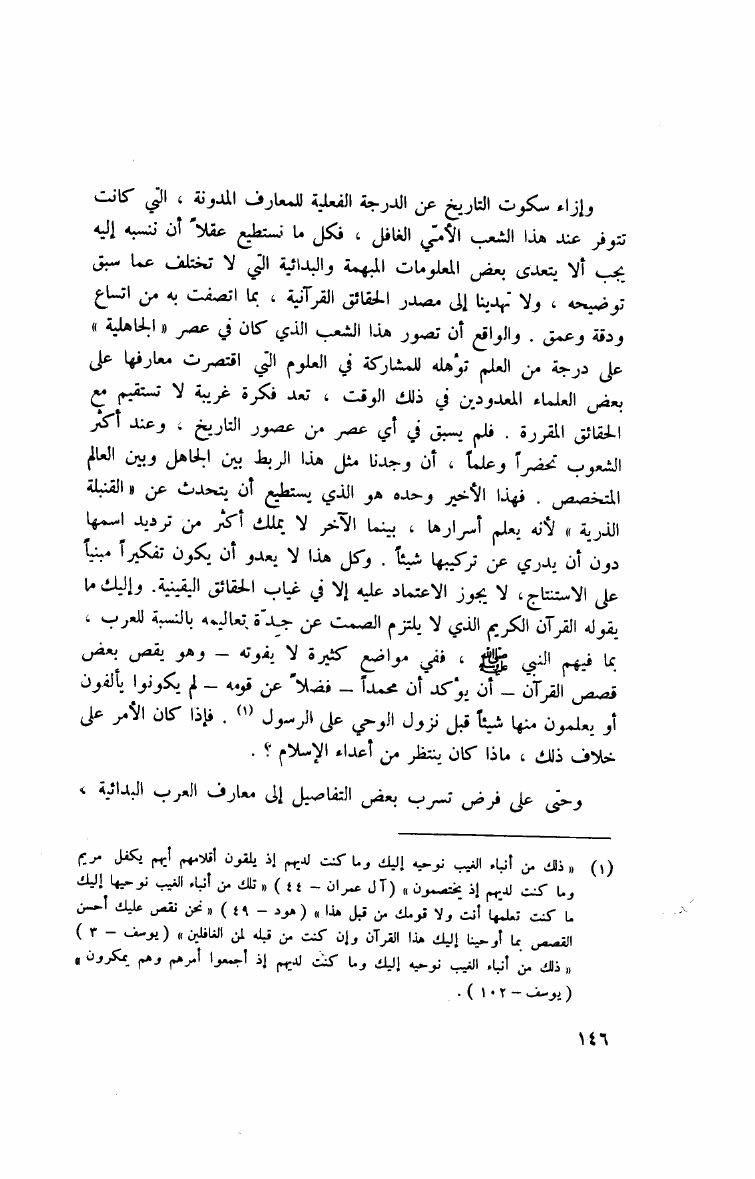 وإزاء سكوت التاريخ عن الدرجة الفعلية للمعارف المدونة ، التي كانت
تتوفر عند هذا الشعب الأمّي الغافل ، فكل ما نستطيع عقلاً أن ننسبه إليه
يجب ألا يتعدى بعض المعلومات المبهمة والبدائية التي لا تختلف عما سبق
توضيحه ، ولا تهدينا إلى مصدر الحقائق القرآنية ، بما اتصفت به من اتساع
ودقة وعمق . والواقع أن تصور هذا الشعب الذي كان في عصر « الجاهلية »
على درجة من العلم تؤهله للمشاركة في العلوم التي اقتصرت معارفها على
بعض العلماء المعدودين في ذلك الوقت ، تعد فكرة غريبة لا تستقيم مع
الحقائق المقررة . فلم يسبق في أي عصر من عصور التاريخ ، وعند أكثر
الشعوب تحضراً وعلماً ، أن وجدنا مثل هذا الربط بين الجاهل وبين العالم
المتخصص . فهذا الأخير وحده هو الذي يستطيع أن يتحدث عن « القنبلة
الذرية » لأنه يعلم أسرارها ، بينما الآخر لا يملك أكثر من ترديد اسمها
دون أن يدري عن تركيبها شيئاً . وكل هذا لا يعدو أن يكون تفكيراً مبنياً
على الاستنتاج، لا يجوز الاعتماد عليه إلا في غياب الحقائق اليقينية. وإليك ما
يقوله القرآن الكريم الذي لا يلتزم الصمت عن جدّة تعاليمه بالنسبة للعرب ،
بما فيهم النبي ﷺ ، ففي مواضع كثيرة لا يفوته – وهو يقص بعض
قصص القرآن – أن يؤكد أن محمداً – فضلاً عن قومه – لم يكونوا يألفون
أو يعلمون منها شيئاً قبل نزول الوحي على الرسول (١) . فإذا كان الأمر على
خلاف ذلك ، ماذا كان ينتظر من أعداء الإسلام ؟ .
وحتى على فرض تسرب بعض التفاصيل إلى معارف العرب البدائية ،
(١) « ذلك من أنباء الغيب نوحيه إليك وما كنت لديهم إذ يلقون أقلامهم أيهم يكفل مريم
وما كنت لديهم إذ يختصمون » ( آل عمران – ٤٤ ) « تلك من أنباء الغيب نوحيها إليك
ما كنت تعلمها أنت ولا قومك من قبل هذا » ( هود – ٤٩ ) « نحن نقص عليك أحسن
القصص بما أوحينا إليك هذا القرآن وإن كنت من قبله لمن الغافلين » ( يوسف – ٣ )
« ذلك من أنباء الغيب نوحيه إليك وما كنت لديهم إذ أجمعوا أمرهم وهم يمكرون »
( يوسف – ١٠٢ ) .
١٤٦